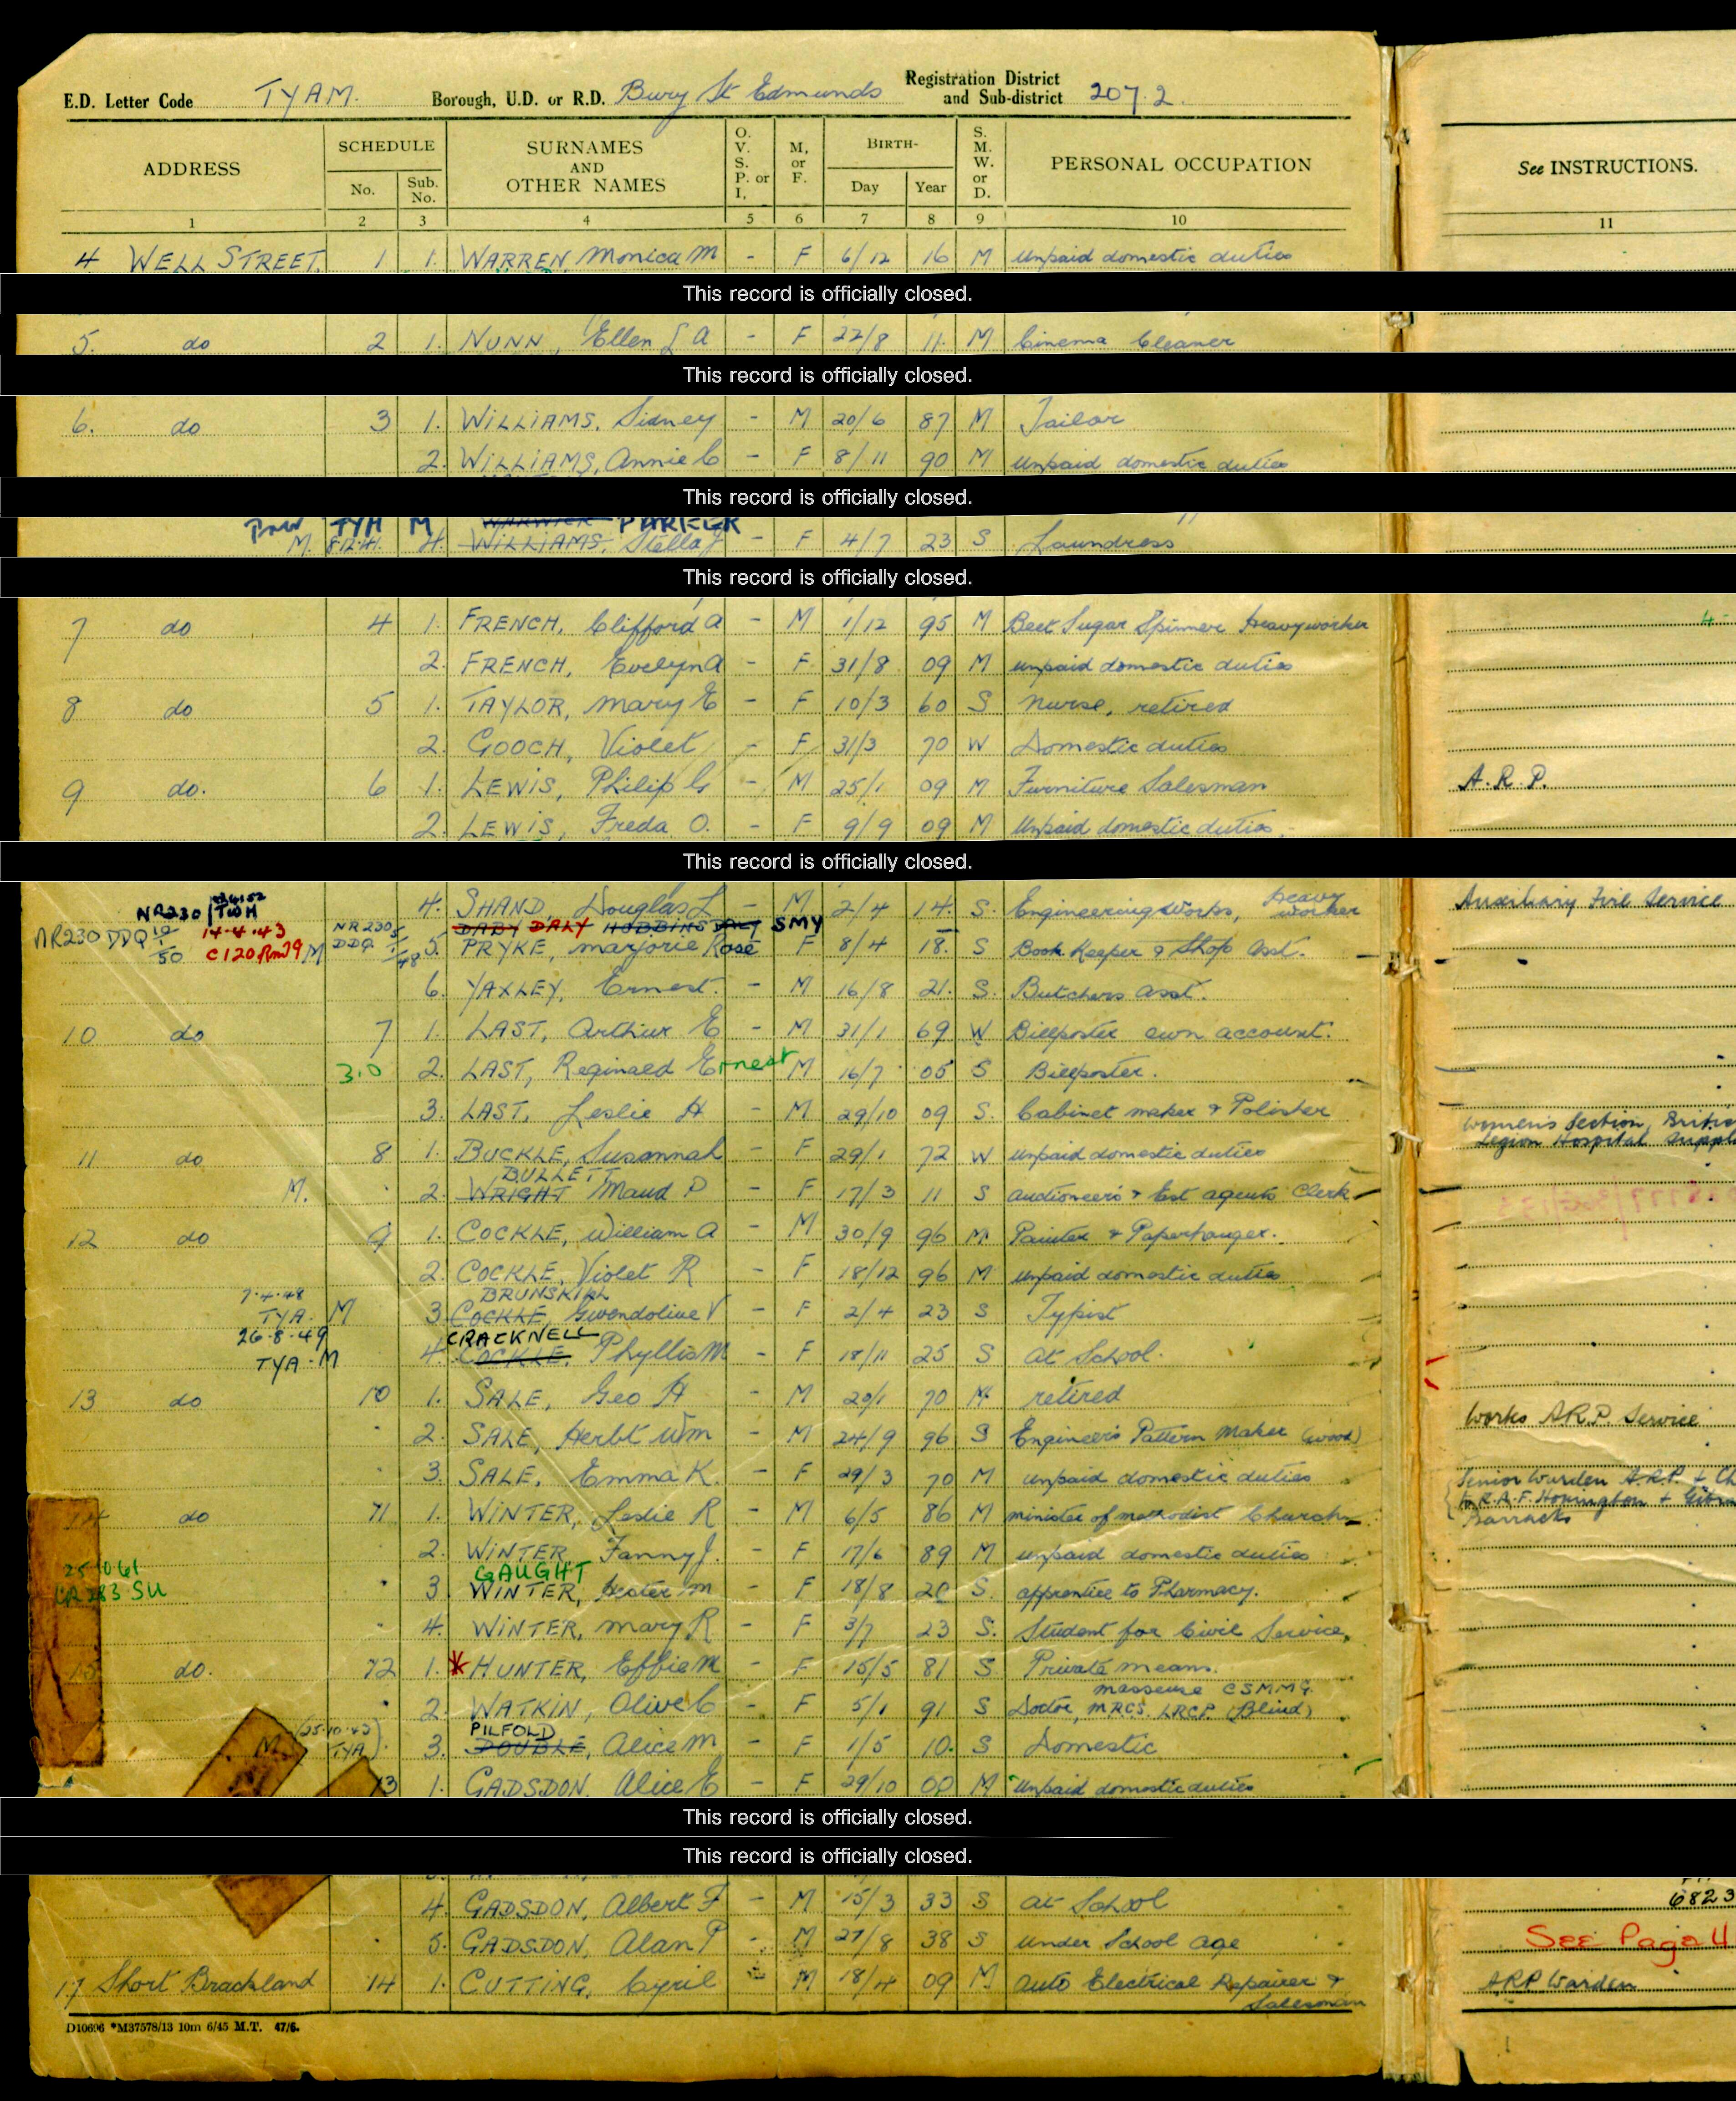 E.D. Letter Code TYAM. Borough, U.D. or R.D. Bury St Edmunds Registration District and Sub-district 207.2.
ADDRESS SCHEDULE No. Sub. No. SURNAMES AND OTHER NAMES O. V. S. P. or I. M. or F. BIRTH- Day Year S. M. W. or D. PERSONAL OCCUPATION See INSTRUCTIONS.
1 2 3 4 5 6 7 8 9 10 11
4 WELL STREET. 1 1. WARREN, Monica M - F 6/12 16 M Unpaid domestic duties
This record is officially closed.
5. do 2 1. NUNN, Ellen L A - F 22/8 11. M Cinema Cleaner
This record is officially closed.
6. do 3 1. WILLIAMS, Sidney - M 20/6 87 M Tailor
2. WILLIAMS, Annie C - F 8/11 90 M Unpaid domestic duties
This record is officially closed.
TYA M WARWICK PARKER
M. 8.12.41. 4. WILLIAMS, Stella J - F 4/7 23 S Laundress
This record is officially closed.
7 do 4 1. FRENCH, Clifford A - M 1/12 95 M Beet Sugar Spinner heavy worker 4
2. FRENCH, Evelyn A - F. 31/8 09 M unpaid domestic duties
8 do 5 1. TAYLOR, Mary E - F 10/3 60 S Nurse, retired
2. GOOCH, Violet - F 31/3 70 W Domestic duties
9 do. 6 1. LEWIS, Philip G - M 25/1 09 M Furniture Salesman A.R.P.
2. LEWIS, Freda O. - F 9/9 09 M Unpaid domestic duties
This record is officially closed.
4. SHAND, Douglas L - M 2/4 14. S. Engineering Works, heavy worker Auxiliary Fire Service
NR230 TWH
14.4.43 DABY DALY HOBBINS DALY SMY
NR230 DDQ 50 C120 Rm79 M NR230 DDQ 48 5. PRYKE, Marjorie Rose F 8/4 18. S Book Keeper & Shop Asst.
6. YAXLEY, Ernest. - M 16/8 21. S. Butchers Asst.
10 do 7 1. LAST, Arthur E - M 31/1 69 W Billposter own account.
3.0 2. LAST, Reginald Ernest M 16/7 05 S Billposter.
3. LAST, Leslie H - M 29/10 09 S. Cabinet maker & Polisher
Women's Section, British
Legion Hospital Suppl
11 do 8 1. BUCKLE, Susannah - F 29/1 72 W unpaid domestic duties
BULLETT
M. 2. WRIGHT Maud P - F 17/3 11 S Auctioneers & Est agents Clerk
12 do 9 1. COCKLE, William A - M 30/9 96 M. Painter & Paperhanger.
2. COCKLE, Violet R - F 18/12 96 M unpaid domestic duties
7.4.48 BRUNSKILL
TYA. M 3. COCKLE, Gwendoline V - F 2/4 23 S Typist
26.8.49 CRACKNELL
TYA. M 4. COCKLE, Phyllis M - F 18/11 25 S At School.
13 do 10 1. SALE, Geo H - M 20/1 70 M. retired
2. SALE, Herbt Wm - M 24/9 96 S Engineers Pattern Maker (wood) Works A.R.P. Service
3. SALE, Emma K. - F 29/3 70 M unpaid domestic duties
Senior Warden A.R.P. & Ch
to R.A.F. Honington & Gibra
Barracks
14 do 71 1. WINTER, Leslie R - M 6/5 86 M minister of methodist Church
2. WINTER, Fanny J. - F 17/6 89 M unpaid domestic duties
25 10 61 GAUGHT
283 SU 3. WINTER, Hester M - F 18/8 20 S. apprentice to Pharmacy.
4. WINTER, Mary R - F 3/7 23 S. Student for Civil Service,
15 do. 72 1. * HUNTER, Effie M - F 15/5 81 S Private means.
masseuse CSMMG.
2. WATKIN, Olive C - F 5/1 91 S Doctor, MRCS. LRCP. (Blind)
PILFOLD
M. (25.10.43 TYA) 3. DOUBLE, Alice M - F 1/5 10. S Domestic
13 1. GADSDON, Alice E - F 29/10 00 M Unpaid domestic duties
This record is officially closed.
This record is officially closed.
4. GADSDON, Albert F - M 15/3 33 S at School 6823
5. GADSDON, Alan P - M 27/8 38 S under School age See Page 4
17 Short Brackland 14 1. CUTTING, Cyril - M 18/4 09 M. Auto Electrical Repairer & Salesman ARP Warden
D10696 *M37578/13 10m 6/45 M.T. 47/6.